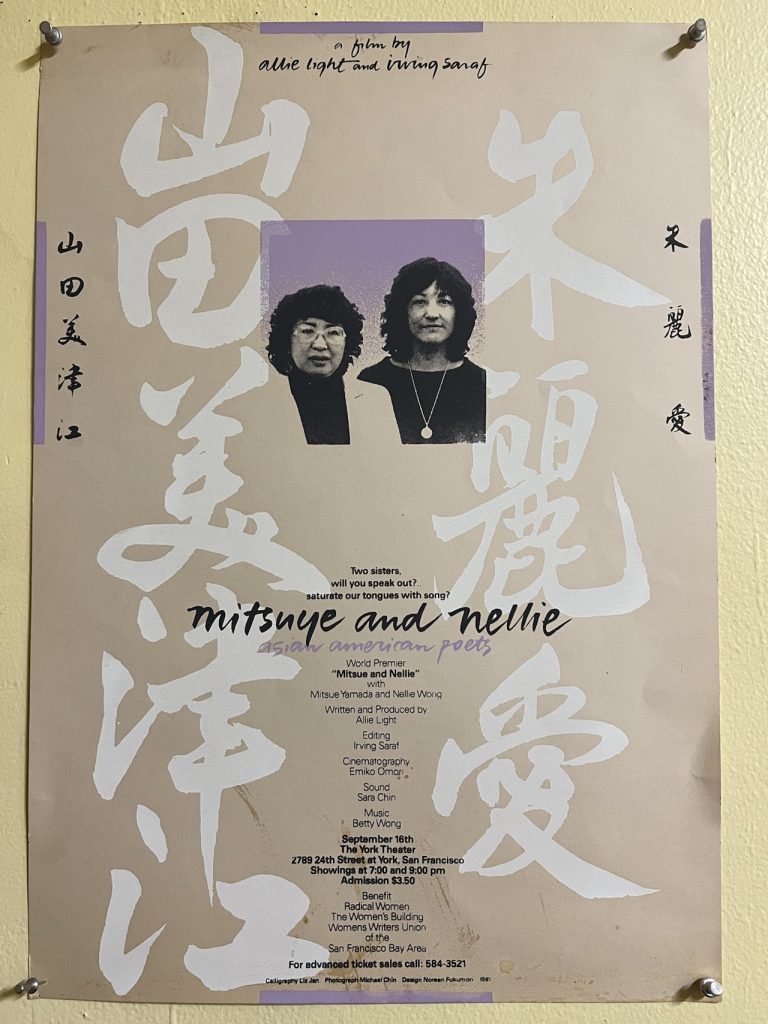 a film by
allie light and irving saraf
山田美津江
朱麗愛
山田美津江
朱麗愛
Two sisters,
will you speak out?..
saturate our tongues with song?
mitsuye and nellie
asian american poets
World Premier
"Mitsue and Nellie"
with
Mitsue Yamada and Nellie Wong
Written and Produced by
Allie Light
Editing
Irving Saraf
Cinematography
Emiko Omori
Sound
Sara Chin
Music
Betty Wong
September 16th
The York Theater
2789 24th Street at York, San Francisco
Showings at 7:00 and 9:00 pm
Admission $3.50
Benefit
Radical Women
The Women's Building
Womens Writers Union
of the
San Francisco Bay Area
For advanced ticket sales call: 584-3521
Calligraphy Liz Jan Photograph Michael Chin Design Noreen Fukumori 1981